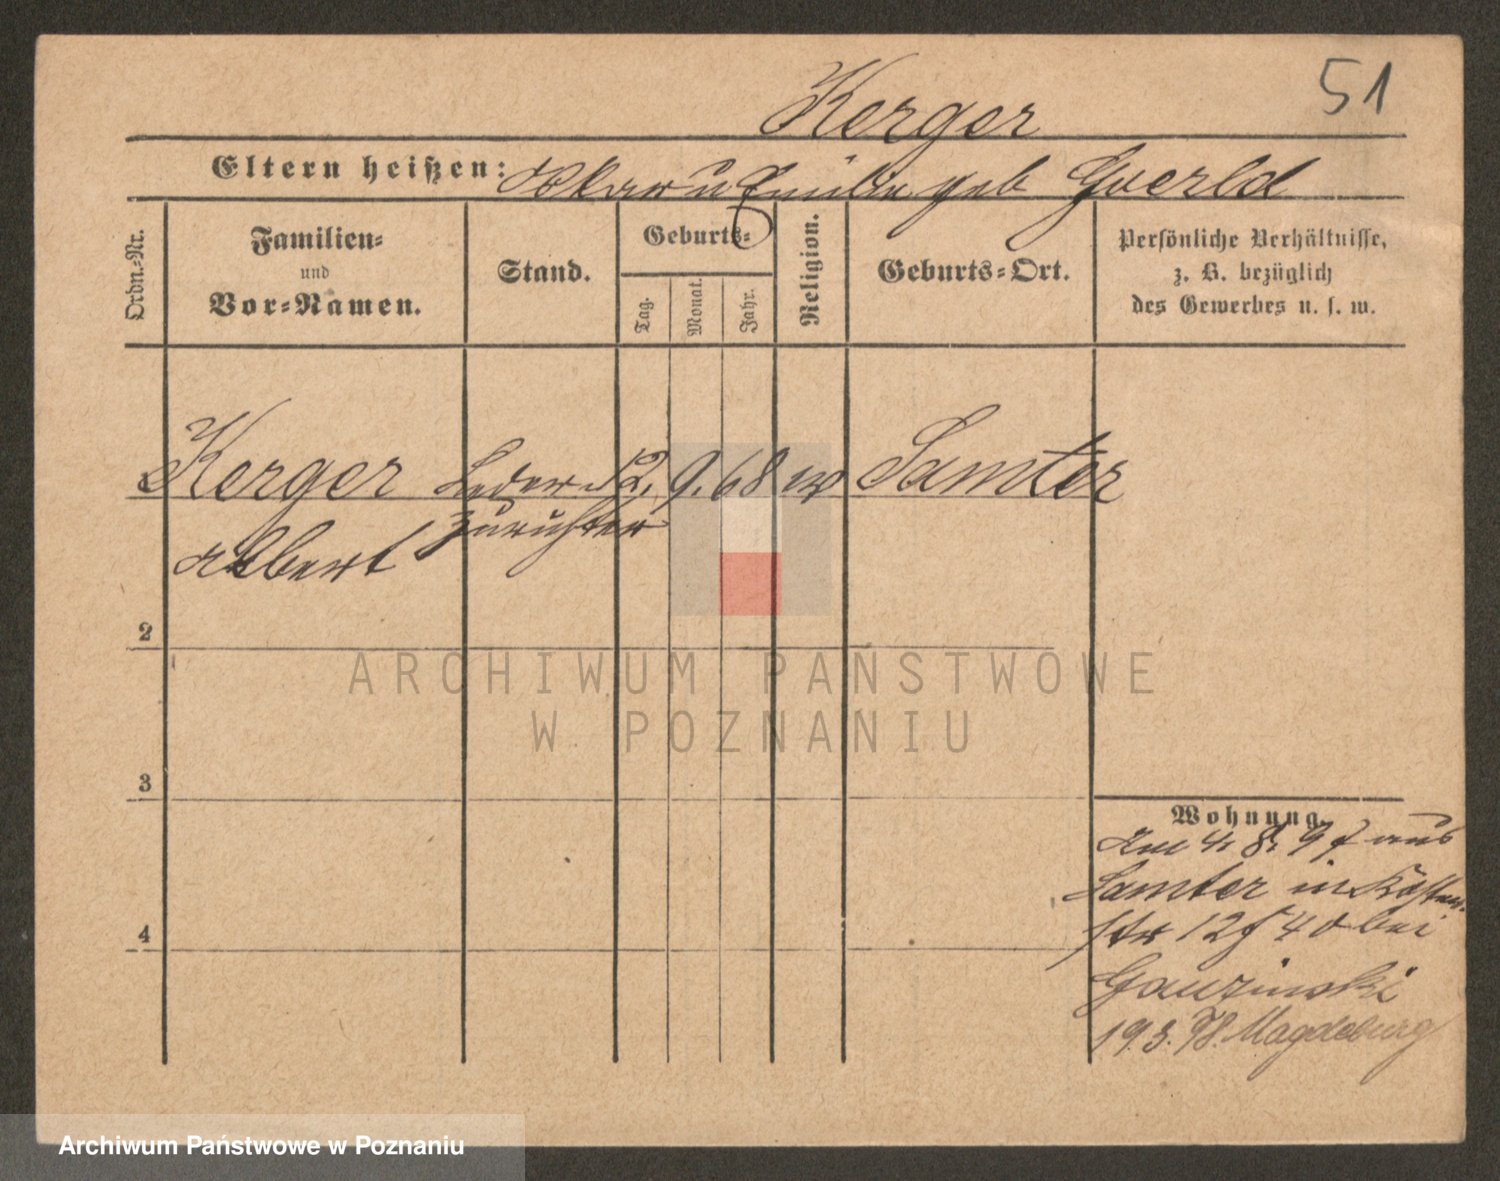 51
Kerger
Eltern heißen: u Emilie geb
Ordn.-Nr.
Familien-
und
Vor-Namen.
Stand.
Geburts-
Tag.
Monat.
Jahr.
Religion.
Geburts-Ort.
Persönliche Verhältnisse,
z. B. bezüglich
des Gewerbes u. s. w.
Kerger Leder 12. 9. 68 ev Samter
Albert zurichter
2
3
4
Wohnung.
Am 4. 8. 97 aus
Samter in
str 12 bei
19.3.98. Magdeburg
ARCHIWUM PAŃSTWOWE
W POZNANIU
Archiwum Państwowe w Poznaniu